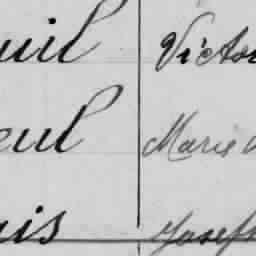 uil Victor
eul Marie
is Joseph